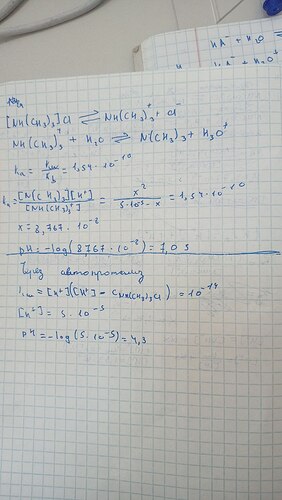 HA⁻ + H₂O
HA⁻ + H₂O⁺
[NH(CH₃)₃]Cl ⇌ NH(CH₃)₃⁺ + Cl⁻
NH(CH₃)₃⁺ + H₂O ⇌ N(CH₃)₃ + H₃O⁺
Ka = Kw/Kb = 1,54·10⁻¹⁰
Ka = [N(CH₃)₃][H⁺]/[NH(CH₃)₃⁺] = x²/(5·10⁻⁵ - x) = 1,54·10⁻¹⁰
x = 8,767·10⁻⁸
pH = -log(8,767·10⁻⁸) = 7,05
Через автопротолиз
Kw = [H⁺]([H⁺] - C NH(CH₃)₃Cl) = 10⁻¹⁴
[H⁺] = 5·10⁻⁵
pH = -log(5·10⁻⁵) = 4,3